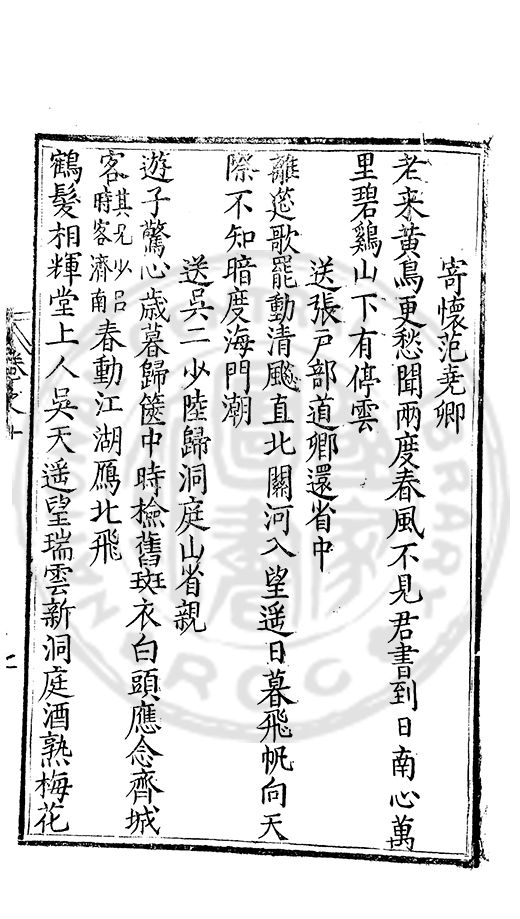 寄懷范堯卿
老来黃鳥更愁聞兩度春風不見君書到日南心萬
里碧鷄山下有停雲
送張戸部道卿還省中
離筵歌罷動清飈直北關河入望遥日暮飛帆向天
際不知暗度海門潮
送吳二少陸歸洞庭山省親
遊子驚心歳暮歸篋中時檢舊斑衣白頭應念齊城
客其兄少吕時客濟南春動江湖鴈北飛
鶴髮相輝堂上人吳天遥望瑞雲新洞庭酒熟梅花
卷之十